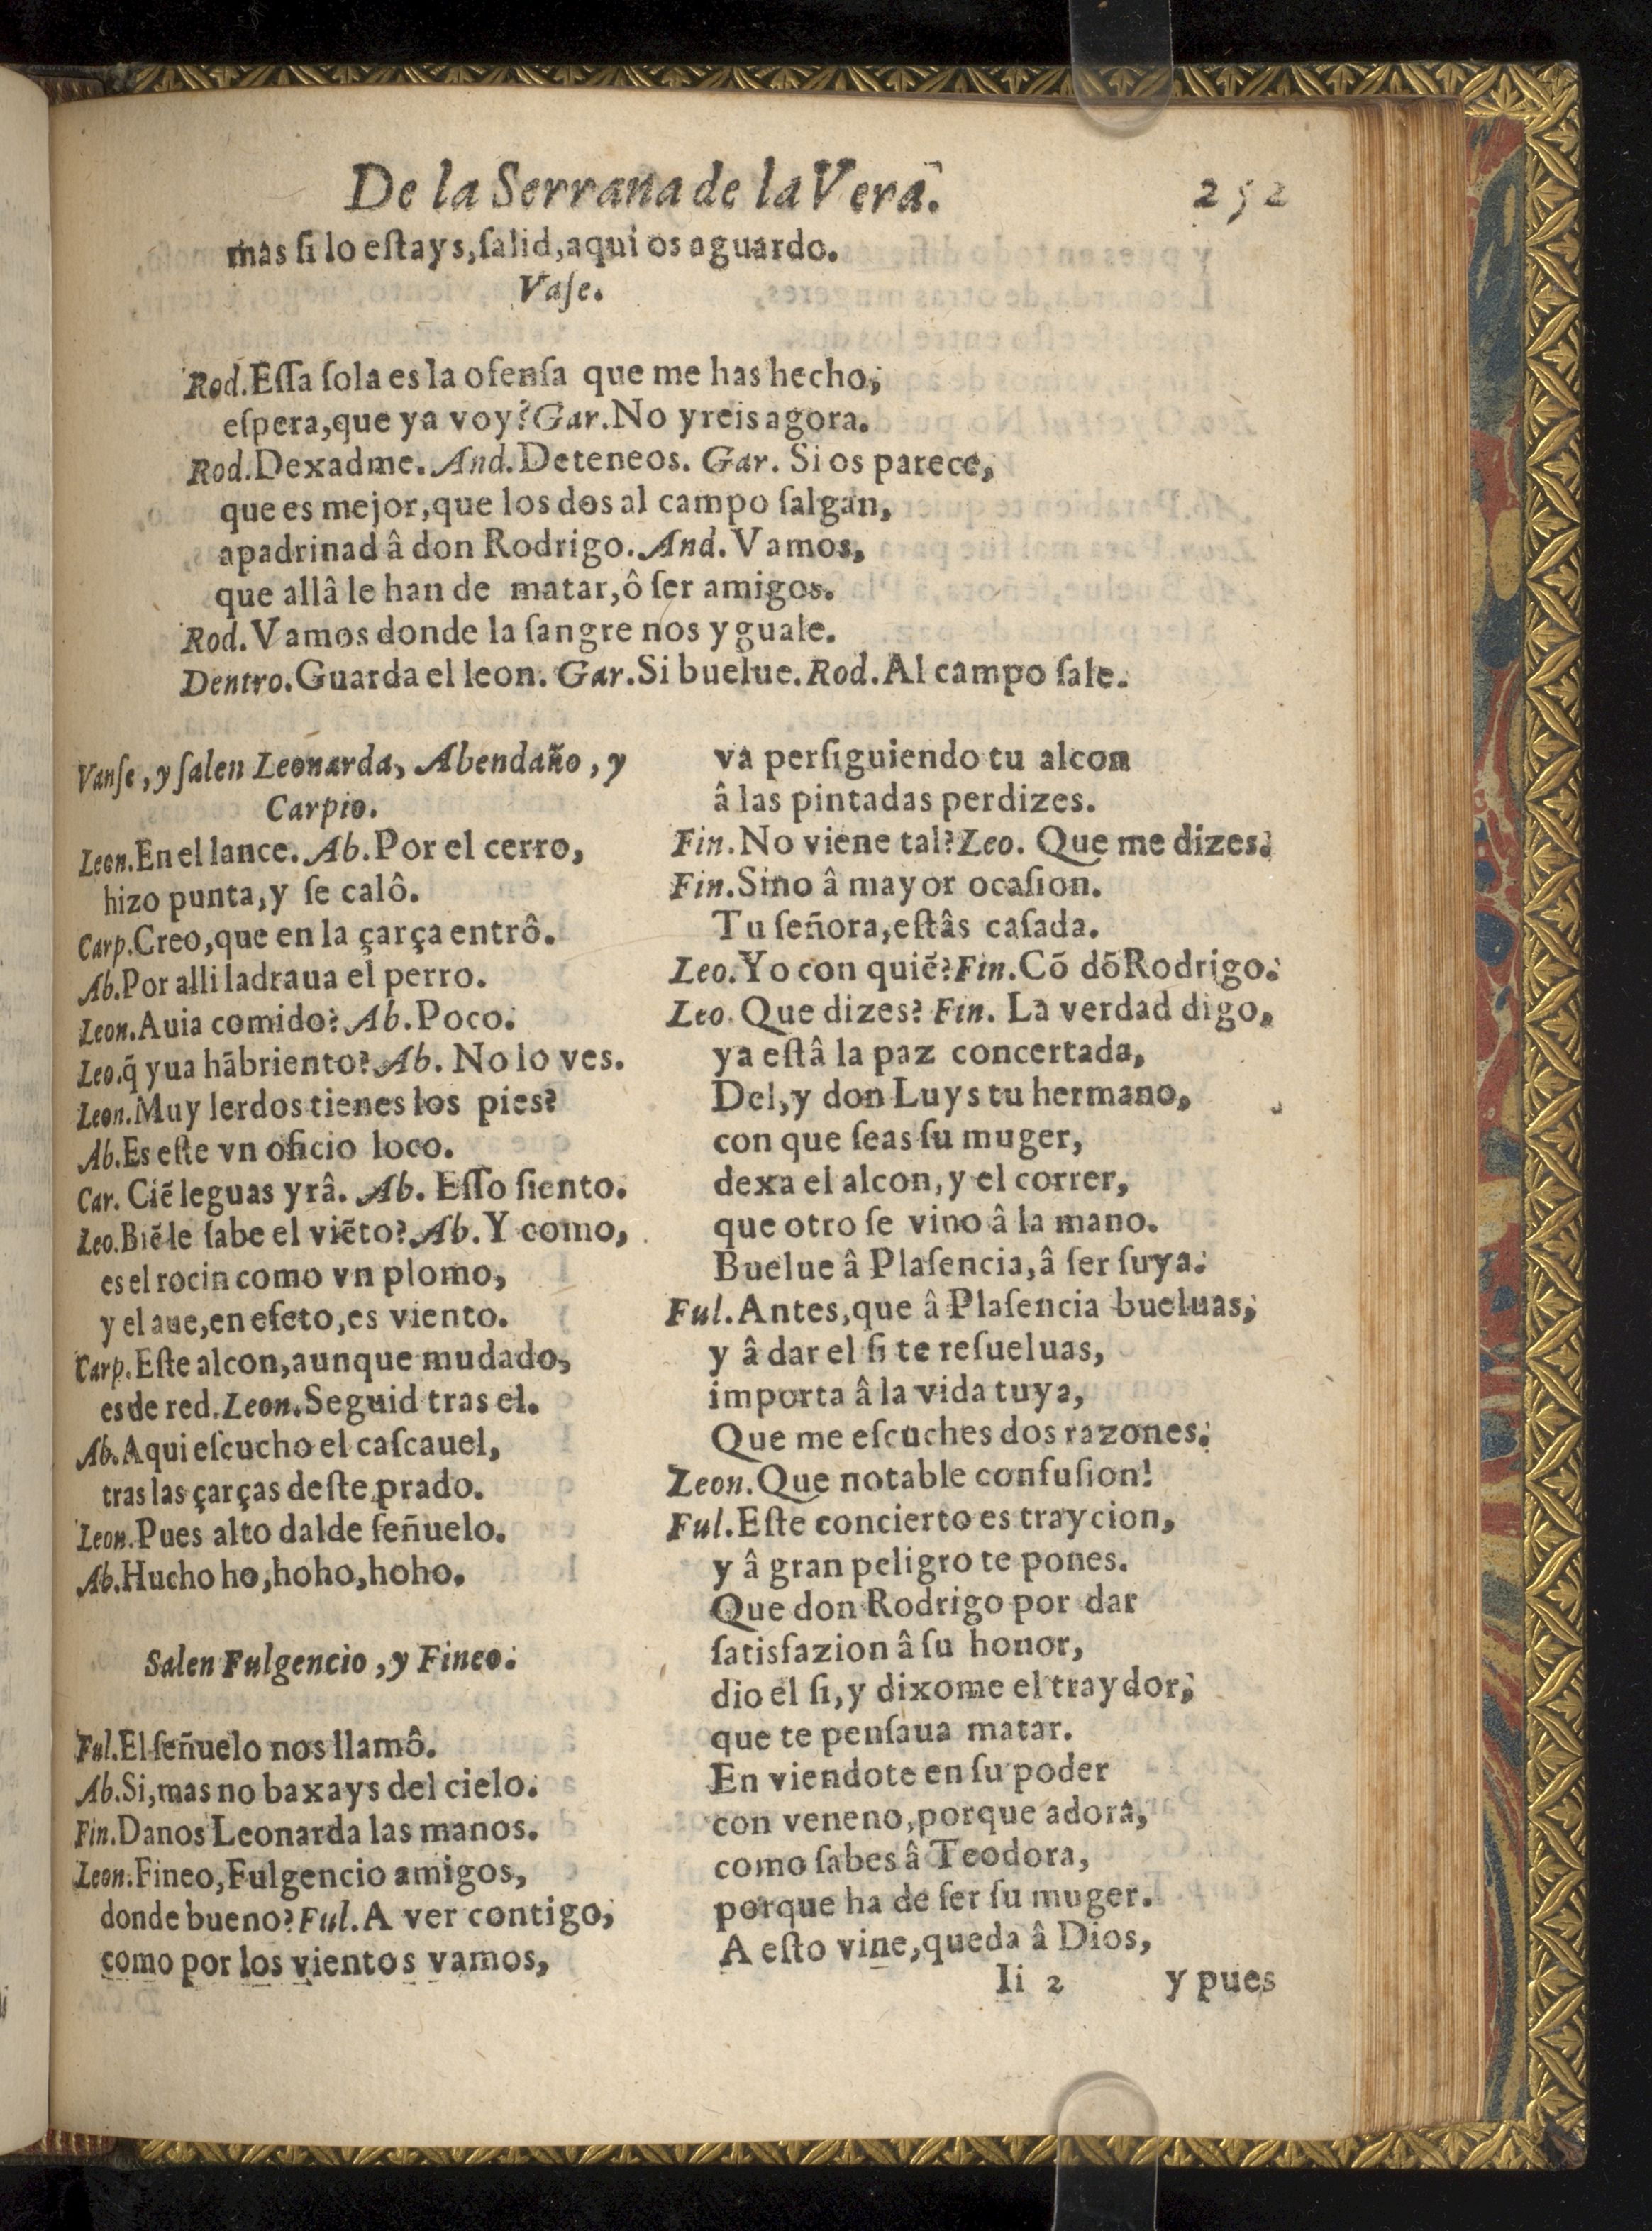 De la Serrana de la Vera.
252
mas ſi lo eſtays, ſalid, aqui os aguardo.
Vaſe.
Rod. Eſſa ſola es la ofenſa que me has hecho,
eſpera, que ya voy? Gar. No yreis agora.
Rod. Dexadme. And. Deteneos. Gar. Si os parece,
que es mejor, que los dos al campo ſalgan,
apadrinad â don Rodrigo. And. Vamos,
que allâ le han de matar, ô ſer amigos.
Rod. Vamos donde la ſangre nos yguale.
Dentro. Guarda el leon. Gar. Si buelue. Rod. Al campo ſale.
Vanſe, y ſalen Leonarda, Abendaño, y
Carpio.
Leon. En el lance. Ab. Por el cerro,
hizo punta, y ſe calô.
Carp. Creo, que en la çarça entrô.
Ab. Por alli ladraua el perro.
Leon. Auia comido? Ab. Poco.
Leo. q̃ yua hãbriento? Ab. No lo ves.
Leon. Muy lerdos tienes los pies?
Ab. Es eſte vn oficio loco.
Car. Ciẽ leguas yrâ. Ab. Eſſo ſiento.
Leo. Biẽ le ſabe el viẽto? Ab. Y como,
es el rocin como vn plomo,
y el aue, en efeto, es viento.
Carp. Eſte alcon, aunque mudado,
es de red. Leon. Seguid tras el.
Ab. Aqui eſcucho el caſcauel,
tras las çarças deſte prado.
Leon. Pues alto dalde ſeñuelo.
Ab. Hucho ho, hoho, hoho.
Salen Fulgencio, y Fineo.
Ful. El ſeñuelo nos llamô.
Ab. Si, mas no baxays del cielo.
Fin. Danos Leonarda las manos.
Leon. Fineo, Fulgencio amigos,
donde bueno? Ful. A ver contigo,
como por los vientos vamos,
va perſiguiendo tu alcon
â las pintadas perdizes.
Fin. No viene tal? Leo. Que me dizes.
Fin. Sino â mayor ocaſion.
Tu ſeñora, eſtâs caſada.
Leo. Yo con quiẽ? Fin. Cõ dõ Rodrigo.
Leo. Que dizes? Fin. La verdad digo,
ya eſtâ la paz concertada,
Del, y don Luys tu hermano,
con que ſeas ſu muger,
dexa el alcon, y el correr,
que otro ſe vino â la mano.
Buelue â Plaſencia, â ſer ſuya.
Ful. Antes, que â Plaſencia bueluas,
y â dar el ſi te reſueluas,
importa â la vida tuya,
Que me eſcuches dos razones.
Leon. Que notable confuſion!
Ful. Eſte concierto es traycion,
y â gran peligro te pones.
Que don Rodrigo por dar
ſatisfazion â ſu honor,
dio el ſi, y dixome el traydor,
que te penſaua matar.
En viendote en ſu poder
con veneno, porque adora,
como ſabes â Teodora,
porque ha de ſer ſu muger.
A eſto vine, queda â Dios,
Ii 2
y pues